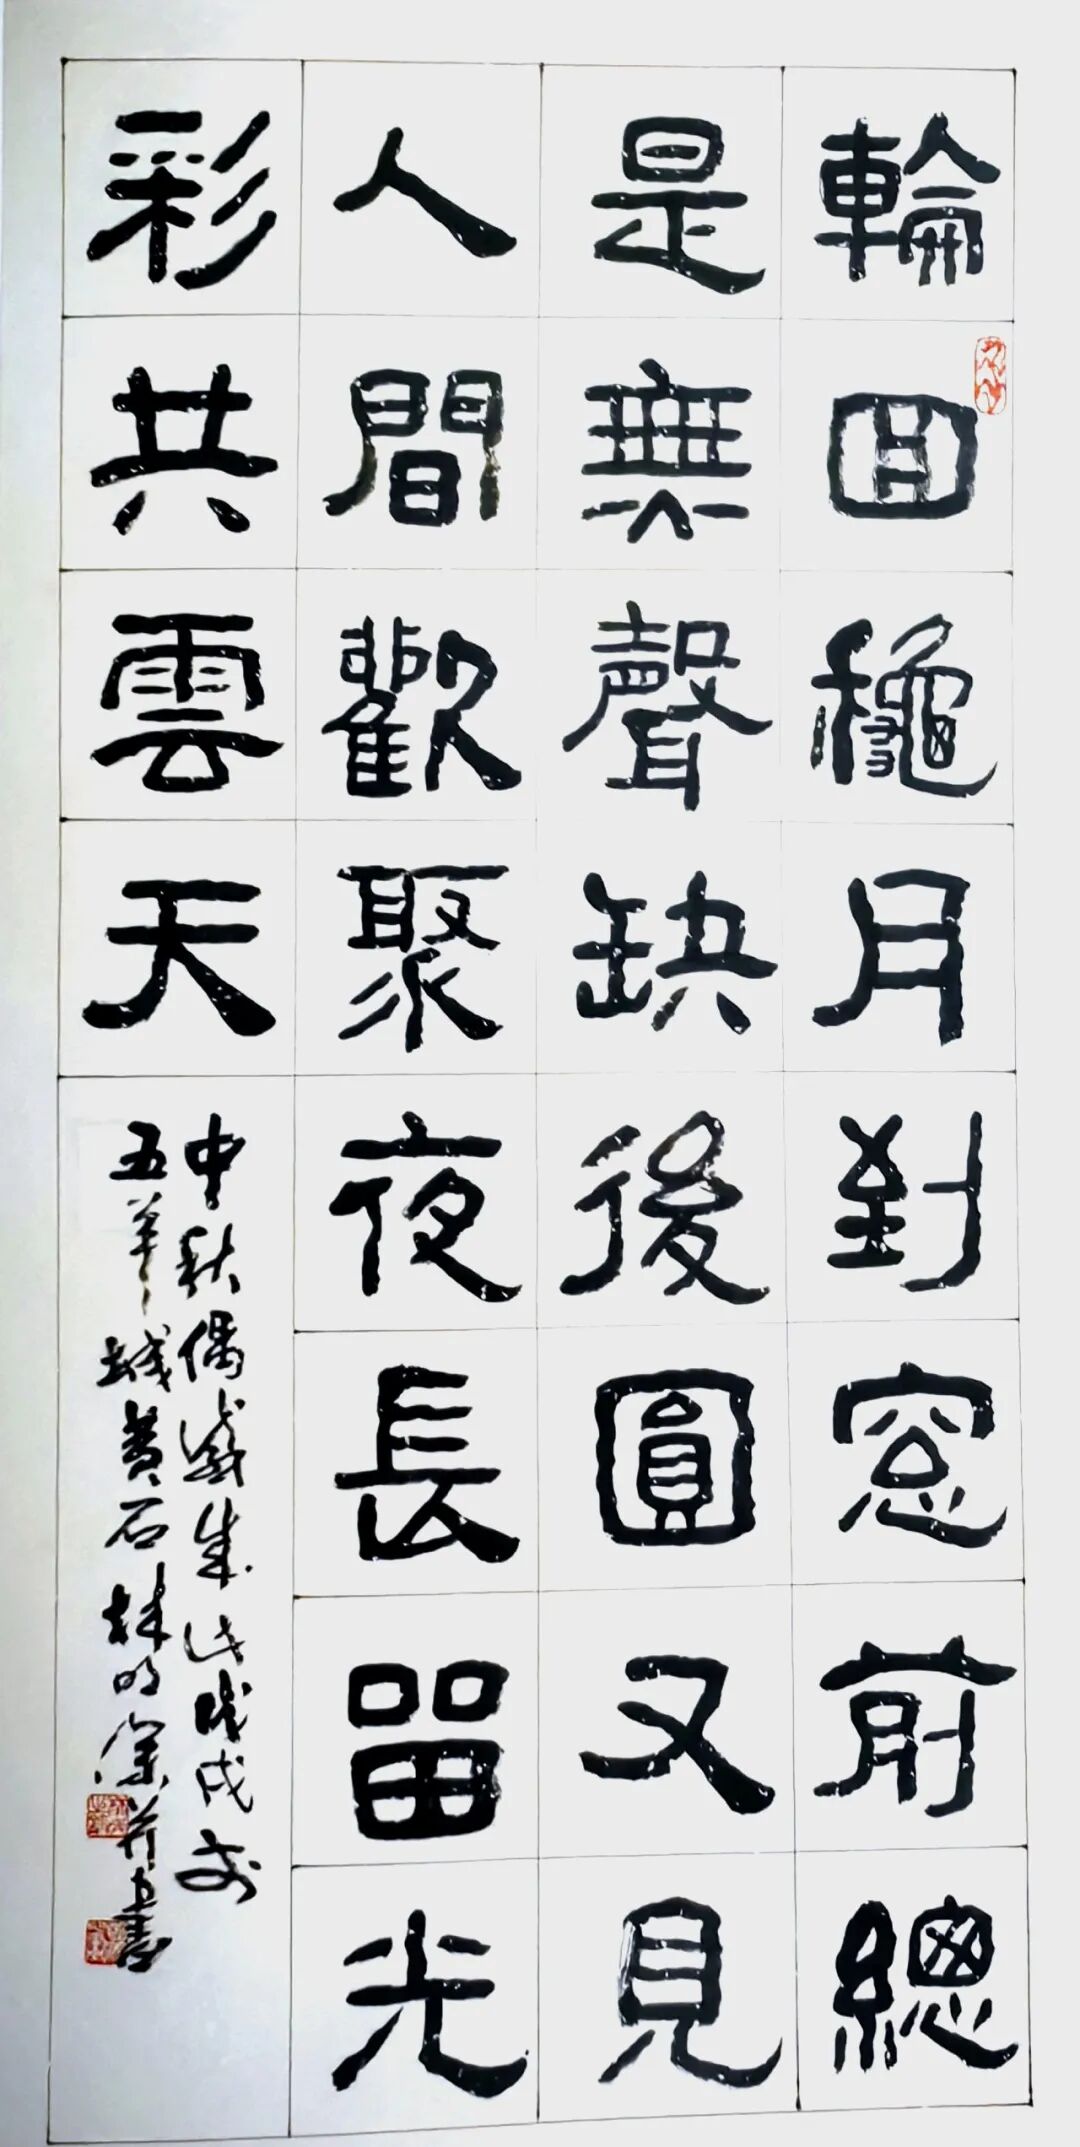 輪回龝月到窓前總
是無聲缺後圓又見
人間歡聚夜長留光
彩共雲天
中秋偶感成此戊戌於
五羊城黄石林明深并書